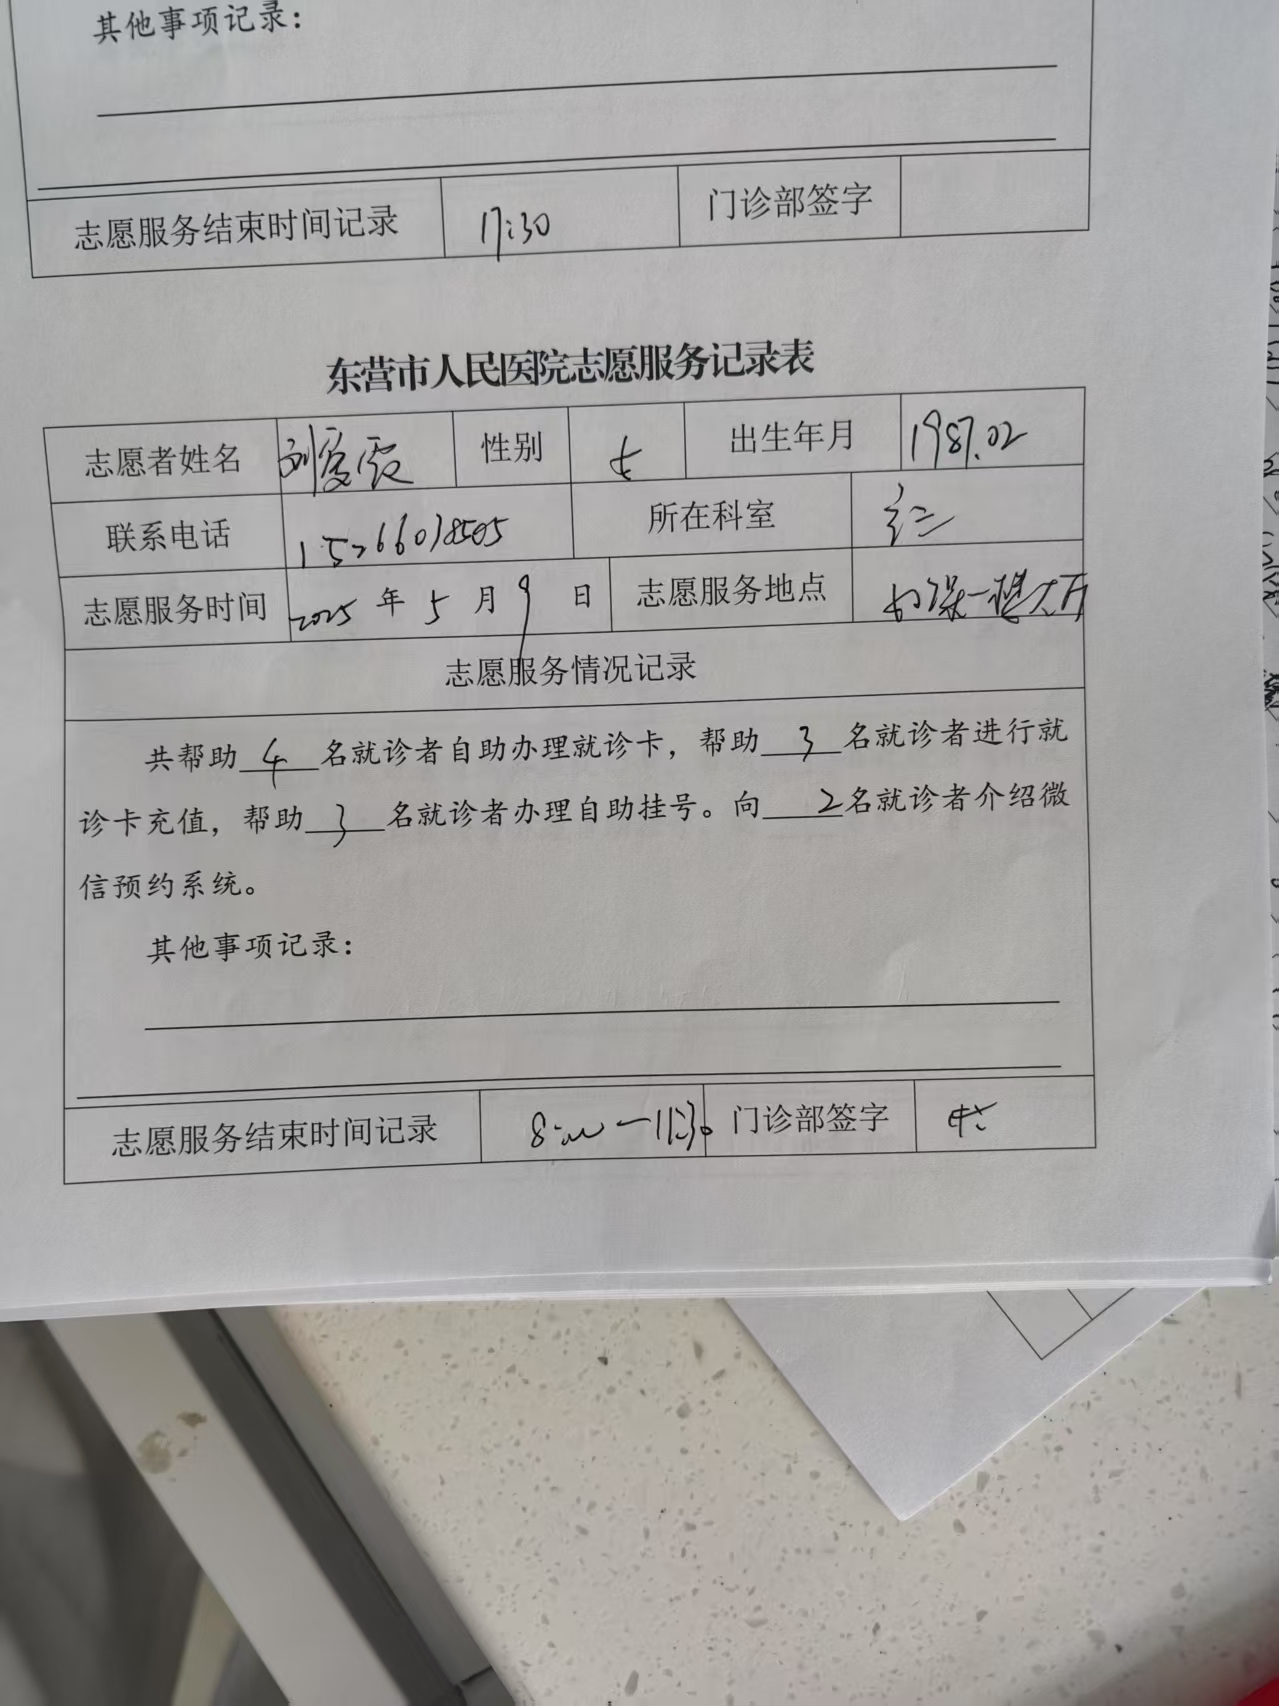 其他事项记录：
志愿服务结束时间记录 17:30 门诊部签字
东营市人民医院志愿服务记录表
志愿者姓名 刘爱霞 性别 女 出生年月 1987.02
联系电话 15266018505 所在科室
志愿服务时间 2025年5月9日 志愿服务地点 妇保一楼大厅
志愿服务情况记录
共帮助 4 名就诊者自助办理就诊卡，帮助 3 名就诊者进行就
诊卡充值，帮助 3 名就诊者办理自助挂号。向 2 名就诊者介绍微
信预约系统。
其他事项记录：
志愿服务结束时间记录 8:00—11:30 门诊部签字